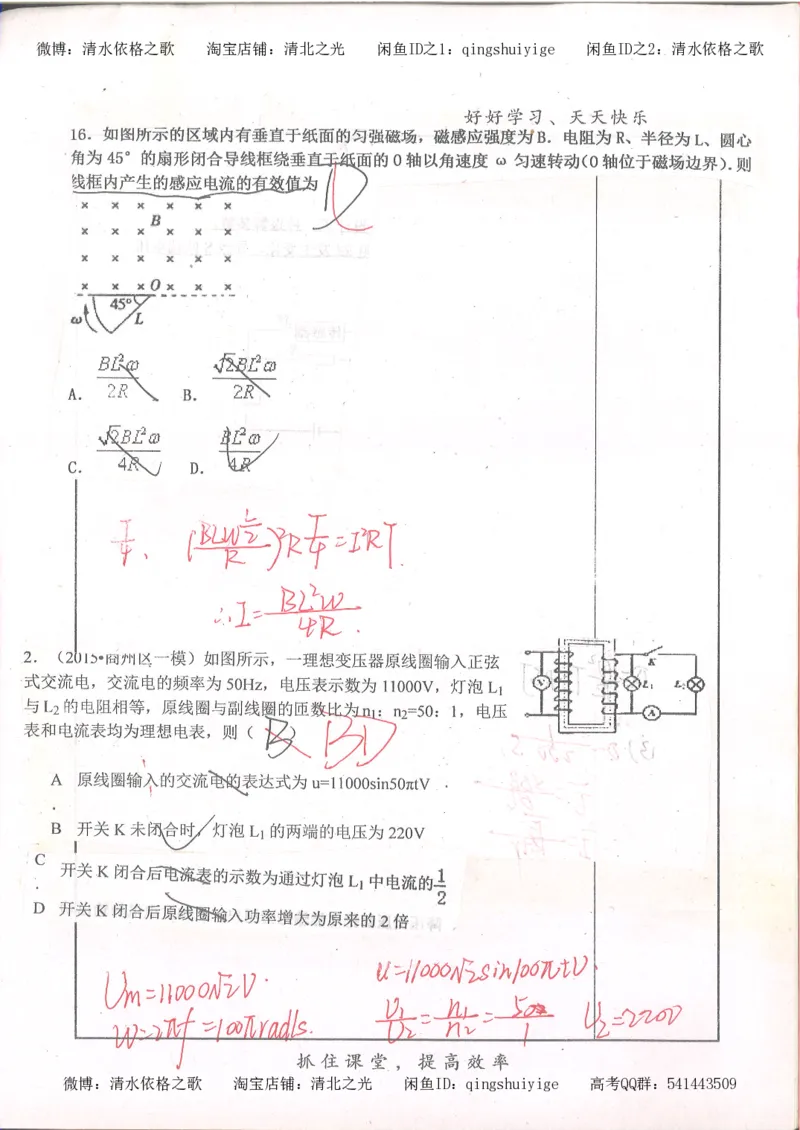 微博：清水依格之歌 淘宝店铺：清北之光 闲鱼ID之1：qingshuiyige 闲鱼ID之2：清水依格之歌
好好学习、天天快乐
16．如图所示的区域内有垂直于纸面的匀强磁场，磁感应强度为B．电阻为R、半径为L、圆心
角为45°的扇形闭合导线框绕垂直于纸面的O轴以角速度ω匀速转动(O轴位于磁场边界)．则
线框内产生的感应电流的有效值为
B
O
45°
ω
L
A． BL²ω/2R B． √2BL²ω/2R
C． √2BL²ω/4R D． BL²ω/4R
T/4、 (BLω L/2 /R)²R T/4=I²RT
∴I=BL²ω/4R.
2．（2015•商州区一模）如图所示，一理想变压器原线圈输入正弦
式交流电，交流电的频率为50Hz，电压表示数为11000V，灯泡L₁
与L₂的电阻相等，原线圈与副线圈的匝数比为n₁：n₂=50：1，电压
表和电流表均为理想电表，则（ B ） BD
V
K
L₁
L₂
A
A 原线圈输入的交流电的表达式为u=11000sin50πtV
B 开关K未闭合时，灯泡L₁的两端的电压为220V
C 开关K闭合后电流表的示数为通过灯泡L₁中电流的1/2
D 开关K闭合后原线圈输入功率增大为原来的2倍
Um=11000√2V.
u=11000√2sin100πtV.
W=2πf=100πrad/s.
U₁/U₂=n₁/n₂=50/1 U₂=220V
抓住课堂，提高效率
微博：清水依格之歌 淘宝店铺：清北之光 闲鱼ID：qingshuiyige 高考QQ群：541443509